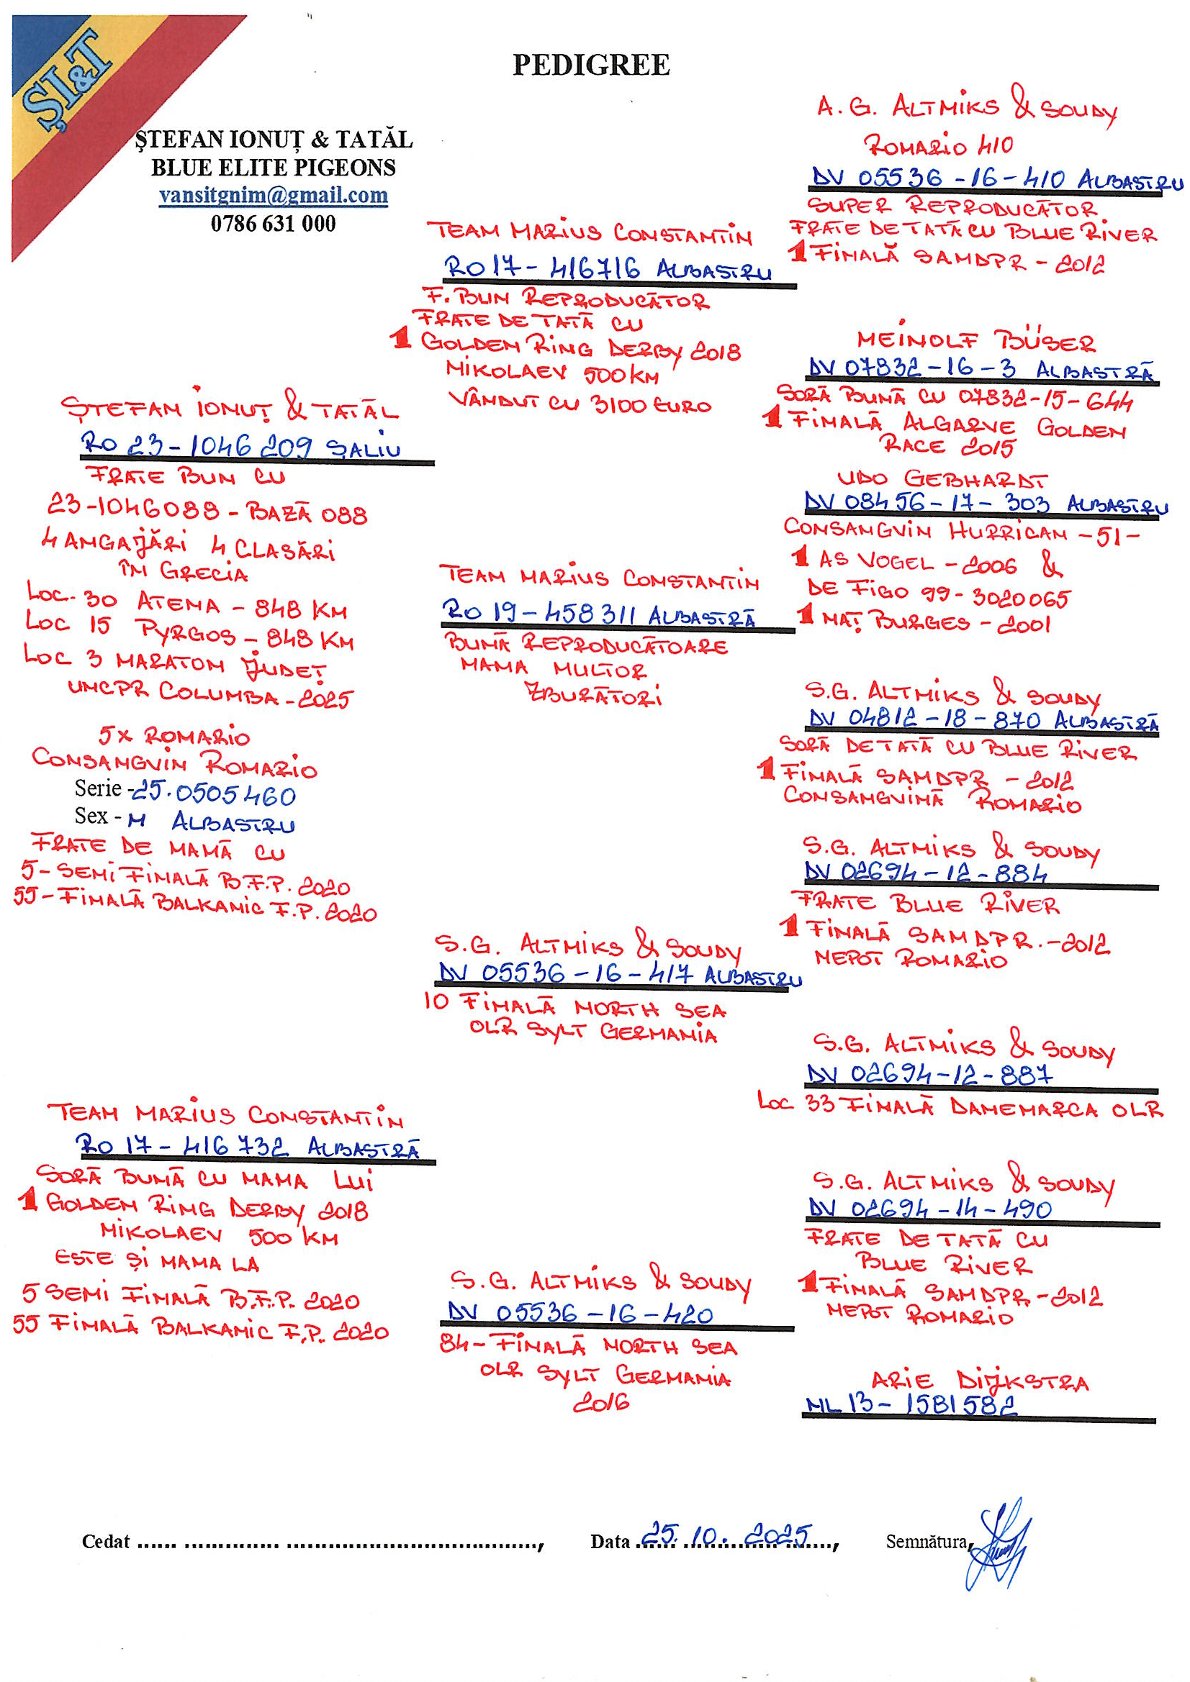 ȘI&T
PEDIGREE
ȘTEFAN IONUȚ & TATĂL
BLUE ELITE PIGEONS
vansitgnim@gmail.com
0786 631 000
ȘTEFAN IONUȚ & TATĂL
RO 23-1046209 ȘALIU
FRATE BUN CU
23-1046088 - BAZĂ 088
4 ANGAJĂRI 4 CLASĂRI
ÎN GRECIA
LOC. 30 ATENA - 848 KM
LOC 15 PYRGOS - 848 KM
LOC 3 MARATON JUDEȚ
UNCPR COLUMBA - 2025
5X ROMARIO
CONSANGVIN ROMARIO
Serie - 25.0505460
Sex - M ALBASTRU
FRATE DE MAMĂ CU
5 - SEMIFINALĂ B.F.P. 2020
55 - FINALĂ BALKANIC F.P. 2020
TEAM MARIUS CONSTANTIN
RO 17 - 416732 ALBASTRĂ
SORĂ BUNĂ CU MAMA LUI
1 GOLDEN RING DERBY 2018
NIKOLAEV 500 KM
ESTE ȘI MAMA LA
5 SEMI FINALĂ B.F.P. 2020
55 FINALĂ BALKANIC F.P. 2020
TEAM MARIUS CONSTANTIN
RO 17 - 416716 ALBASTRU
F. BUN REPRODUCĂTOR
FRATE DE TATĂ CU
1 GOLDEN RING DERBY 2018
NIKOLAEV 500 KM
VÂNDUT CU 3100 EURO
TEAM MARIUS CONSTANTIN
RO 19 - 458311 ALBASTRĂ
BUNĂ REPRODUCĂTOARE
MAMA MULTOR
ZBURĂTORI
S.G. ALTMIKS & SOUDY
DV 05536 - 16 - 417 ALBASTRU
10 FINALĂ NORTH SEA
OLR SYLT GERMANIA
S.G. ALTMIKS & SOUDY
DV 05536 - 16 - 420
84 - FINALĂ NORTH SEA
OLR SYLT GERMANIA
2016
A.G. ALTMIKS & SOUDY
ROMARIO 410
DV 05536 - 16 - 410 ALBASTRU
SUPER REPRODUCĂTOR
FRATE DE TATĂ CU BLUE RIVER
1 FINALĂ SAMDPR - 2012
MEINOLF BÜSER
DV 07832 - 16 - 3 ALBASTRĂ
SORĂ BUNĂ CU 07832-15-644
1 FINALĂ ALGARVE GOLDEN
RACE 2015
UDO GEBHARDT
DV 08456 - 17 - 303 ALBASTRU
CONSANGVIN HURRICAN - 51 -
1 AS VOGEL - 2006 &
DE FIGO 99 - 3020065
1 NAȚ BURGES - 2001
S.G. ALTMIKS & SOUDY
DV 04812 - 18 - 870 ALBASTRĂ
SORĂ DE TATĂ CU BLUE RIVER
1 FINALĂ SAMDPR - 2012
CONSANGVINĂ ROMARIO
S.G. ALTMIKS & SOUDY
DV 02694 - 12 - 884
FRATE BLUE RIVER
1 FINALĂ SAMDPR. - 2012
NEPOT ROMARIO
S.G. ALTMIKS & SOUDY
DV 02694 - 12 - 887
LOC 33 FINALĂ DANEMARCA OLR
S.G. ALTMIKS & SOUDY
DV 02694 - 14 - 490
FRATE DE TATĂ CU
BLUE RIVER
1 FINALĂ SAMDPR - 2012
NEPOT ROMARIO
ARIE DIJKSTRA
NL 13 - 1581582
Cedat ...... .............. ....................................., Data 25.10.2025, Semnătura,